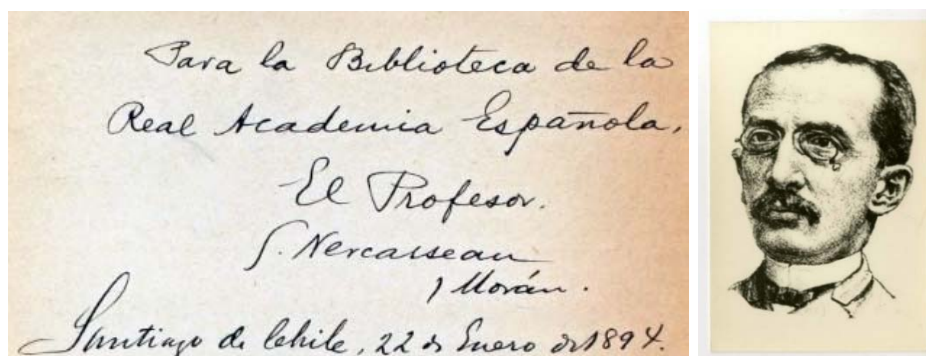 Para la Biblioteca de la
Real Academia Española.
El Profesor.
E. Nercasseau
y Morán.
Santiago de Chile, 22 de Enero de 1894.